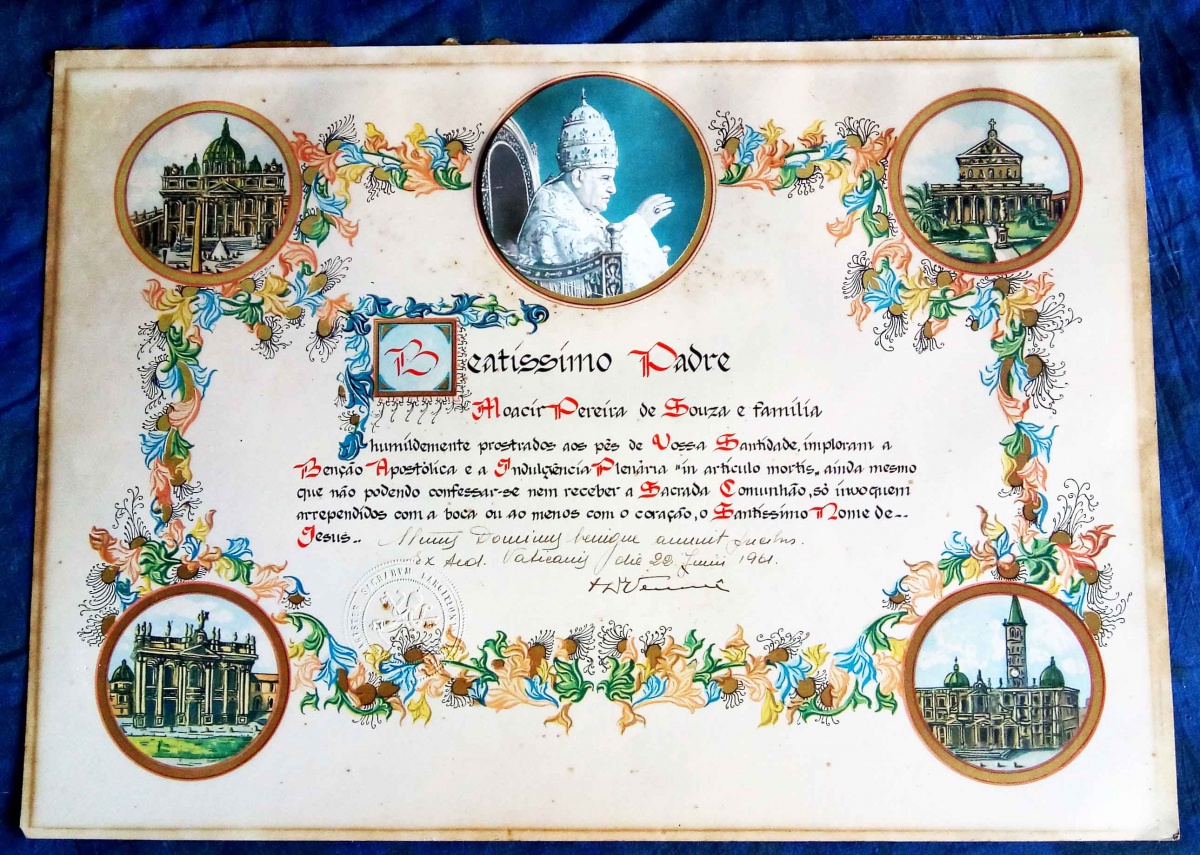 Beatissimo Padre
Moacir Pereira de Souza e família
humildemente prostrados aos pés de Vossa Santidade, imploram a
Benção Apostólica e a Indulgência Plenária "in articulo mortis„ ainda mesmo
que não podendo confessar-se nem receber a Sacrada Comunhão, só invoquem
arrependidos com a boca ou ao menos com o coração, o Santíssimo Nome de--
Jesus..
Dominus benigne annuit
Ex Aed. Vaticanis die 22 Junii 1961.